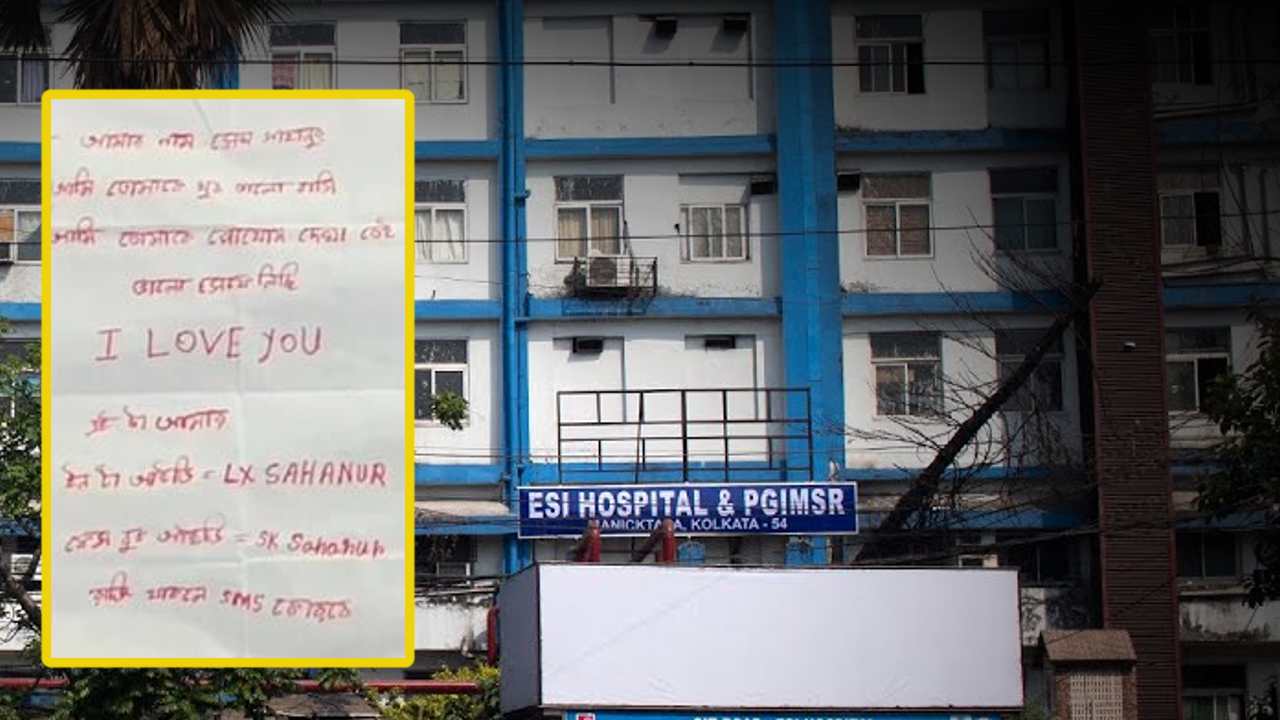 আমার নাম সেখ সাহানুর
আমি তোমাকে খুব ভালো বাসি
আমি তোমাকে দেখা
ভালো
I LOVE YOU
আমার
ইন টা আইডি = LX SAHANUR
ফেস বুক আইডি = SK Sahanur
রাজি থাকলে SMS
ESI HOSPITAL & PGIMSR
MANICKTALA, KOLKATA - 54